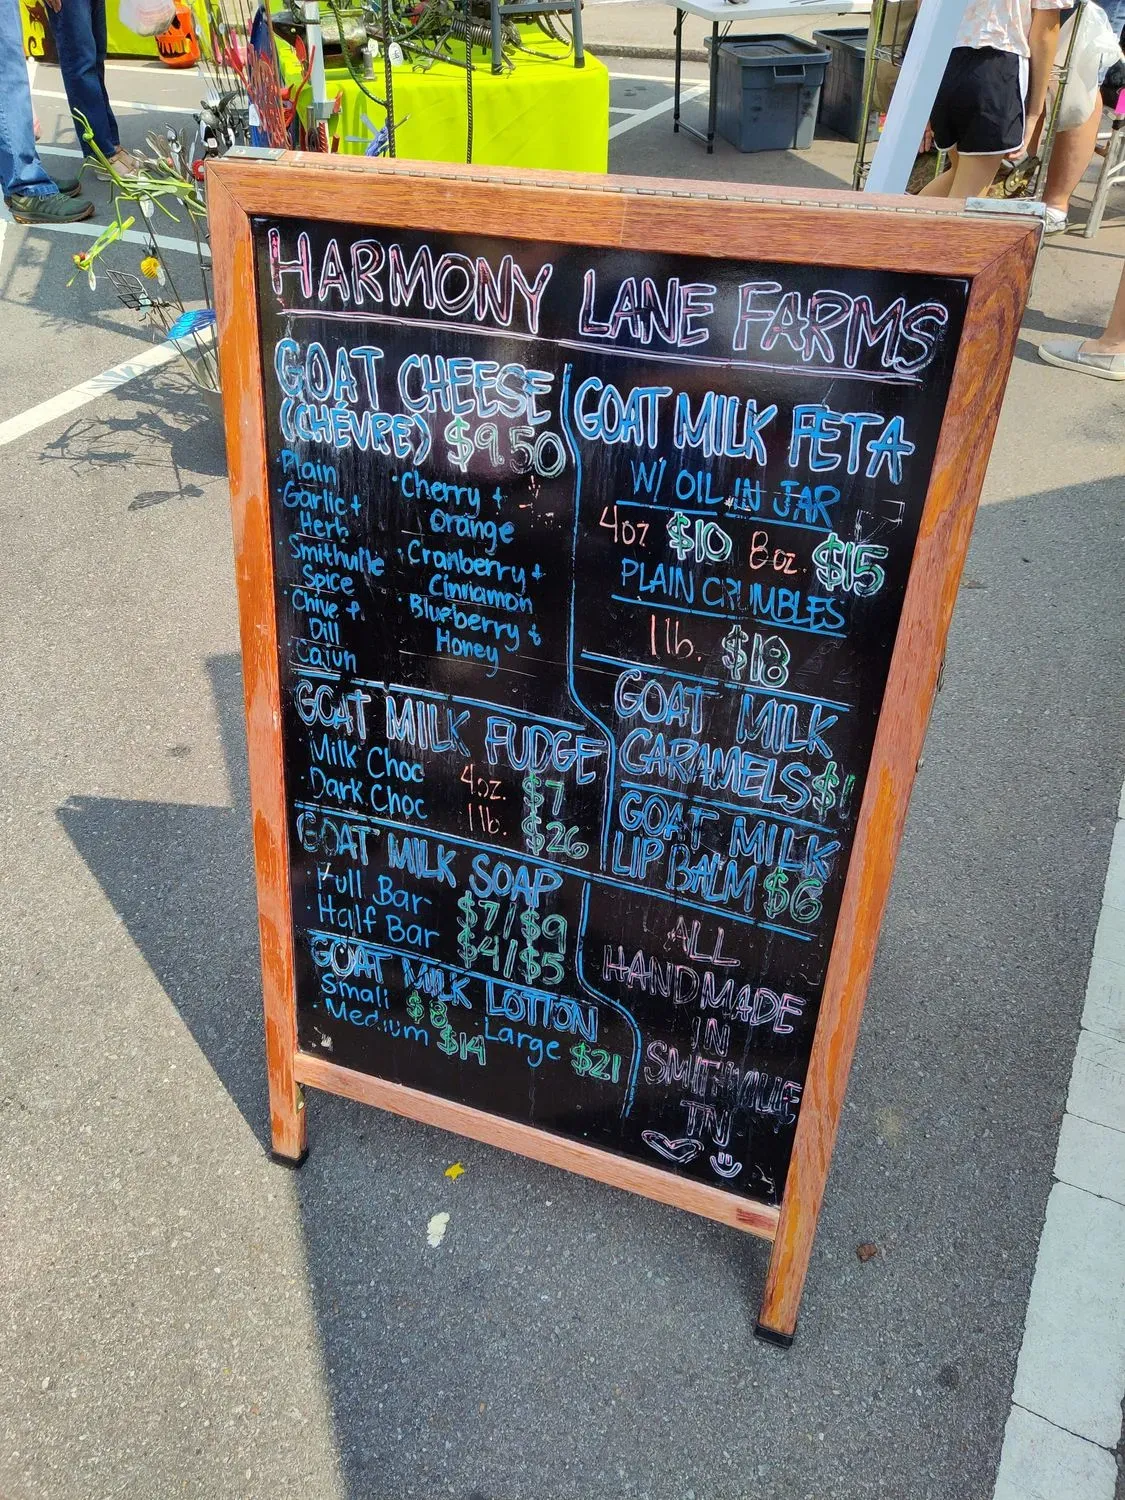 HARMONY LANE FARMS
GOAT CHEESE
(CHÉVRE) $9.50
·Plain
·Garlic +
Herb
Smithville
Spice
·Chive +
Dill
Cajun
·Cherry +
Orange
·Cranberry +
Cinnamon
·Blueberry +
Honey
GOAT MILK FUDGE
·Milk Choc 4oz. $7
·Dark Choc 1lb. $26
GOAT MILK SOAP
·Full Bar $7/$9
·Half Bar $4/$5
GOAT MILK LOTION
Small $8
·Medium $14
·Large $21
GOAT MILK FETA
W/ OIL IN JAR
4oz $10 8oz. $15
PLAIN CRUMBLES
1lb. $18
GOAT MILK
CARAMELS $1
GOAT MILK
LIP BALM $6
ALL
HANDMADE
IN
SMITHVILLE
TN